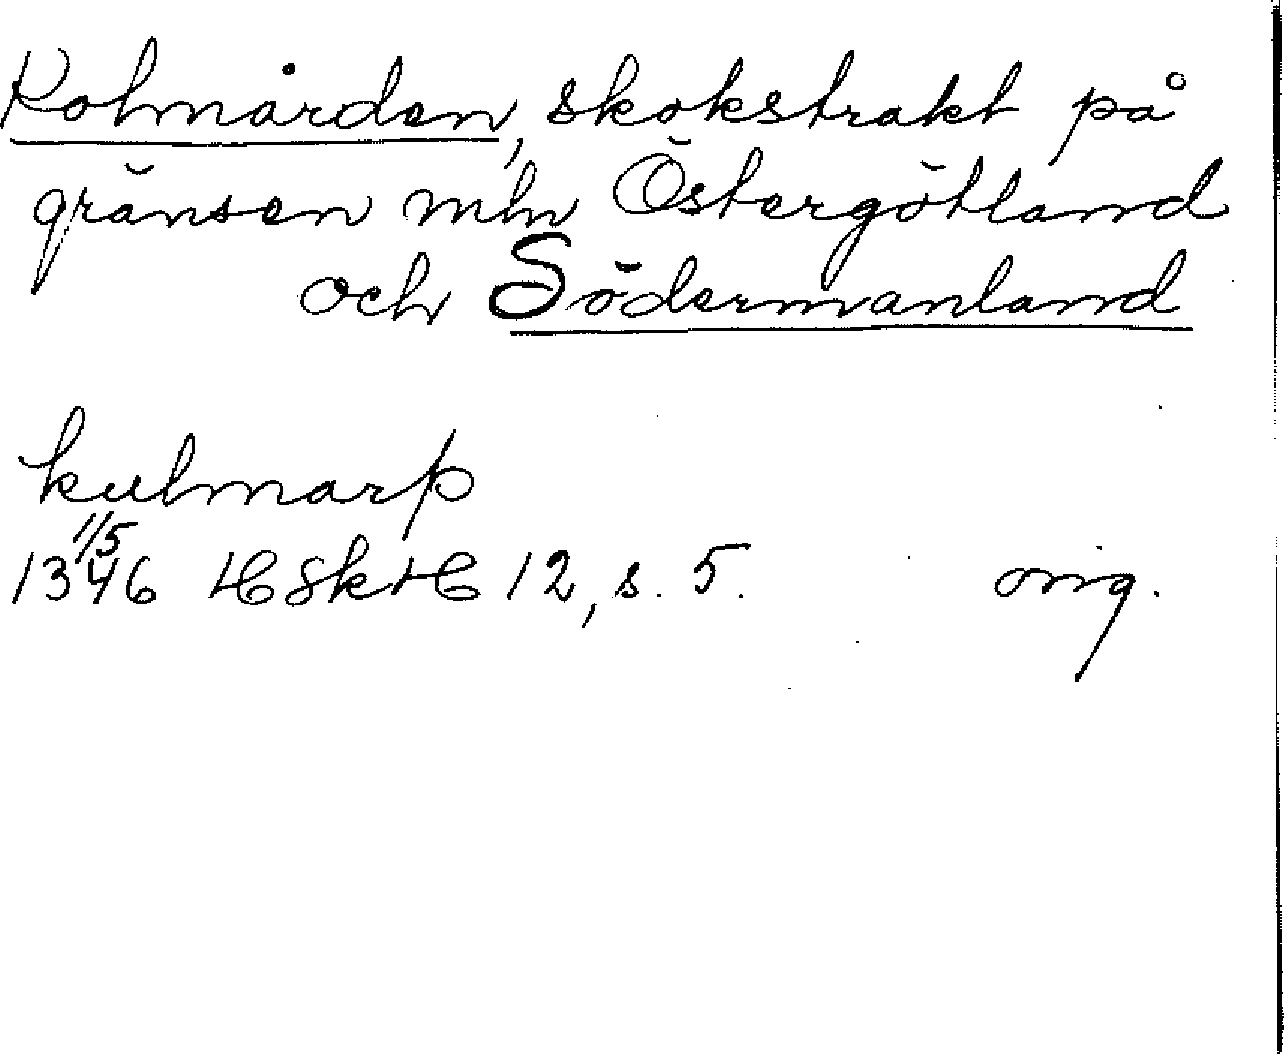 Kolmården, skokstrakt på
gränsen mln Östergötland
och Södermanland
kulmarþ
1346 11/5 HSH 12, s. 5. orig.